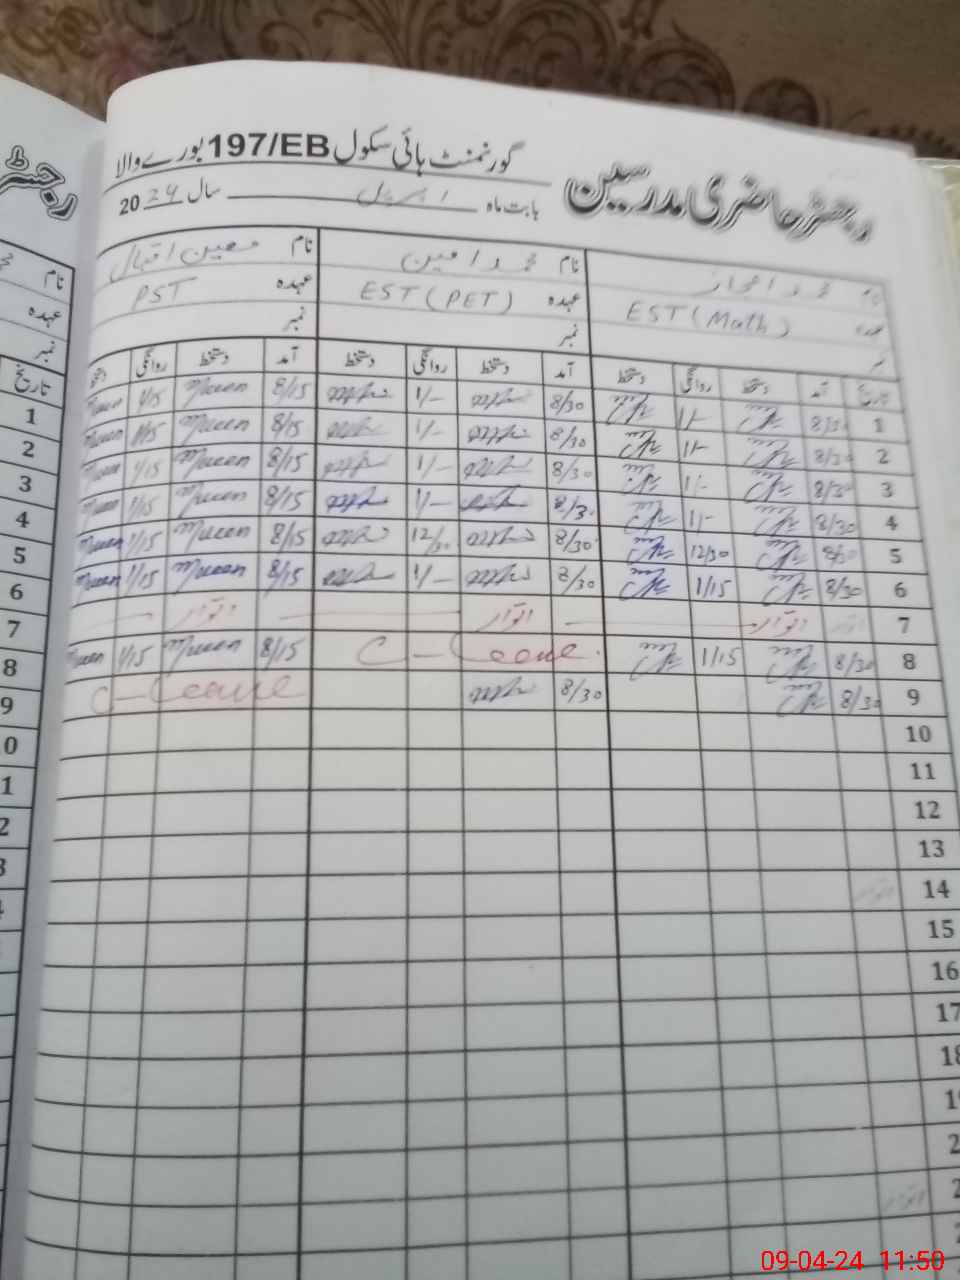 رجسٹر حاضری مدرسین
گورنمنٹ ہائی سکول 197/EB بورے والا
بابت ماہ اپریل سال 2024
نام محمد اعجاز نام محمد امین نام معین اقبال
عہدہ EST (Math) عہدہ EST (PET) عہدہ PST
نمبر نمبر
تاریخ آمد دستخط روانگی دستخط آمد دستخط روانگی دستخط آمد دستخط روانگی دستخط
1 8/30 1/- 8/30 1/- 8/15 1/15
2 8/30 1/- 8/30 1/- 8/15 1/15
3 8/30 1/- 8/30 1/- 8/15 1/15
4 8/30 1/- 8/30 1/- 8/15 1/15
5 8/30 12/30 8/30 12/30 8/15 1/15
6 8/30 1/15 8/30 1/- 8/15 1/15
7 اتوار اتوار اتوار اتوار
8 8/30 1/15 C-Leave 8/15 1/15
9 8/30 8/30 C-Leave
10
11
12
13
14 اتوار
15
16
17
18
اتوار
رجسٹر
نام
عہدہ
نمبر
تاریخ
1
2
3
4
5
6
7
8
9
09-04-24 11:50